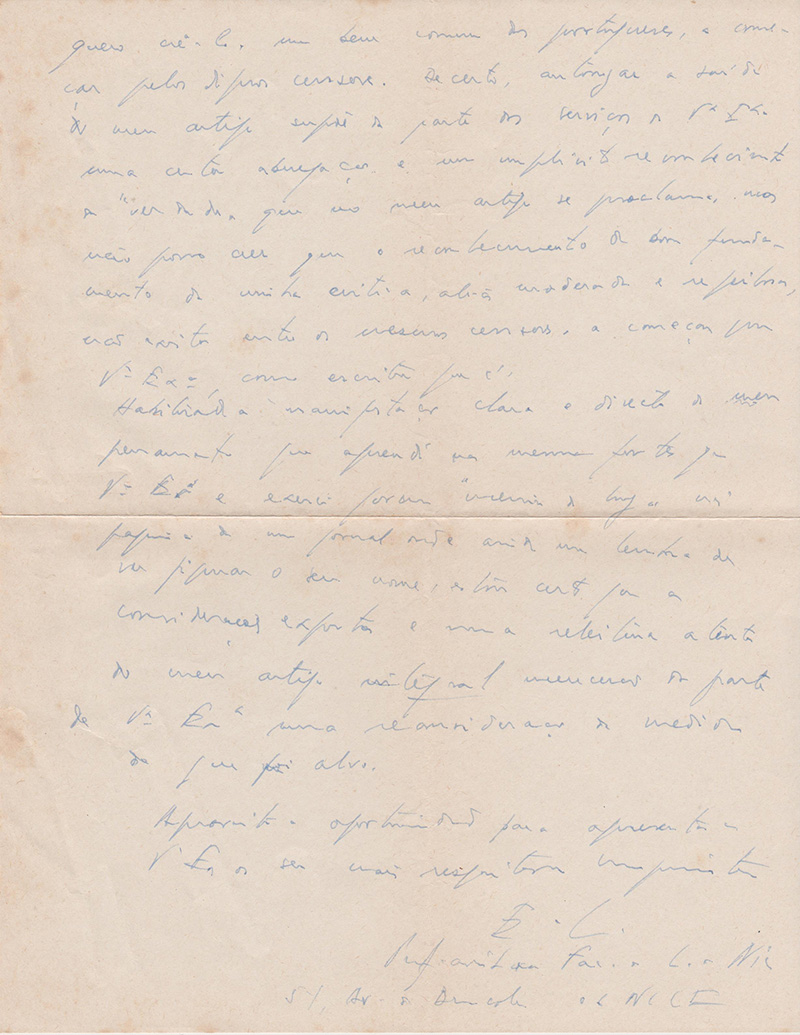 quero crê-lo, um bem comum dos portugueses, a come-
çar pelos dignos censores. Decerto, autorizar a saída
do meu artigo supõe da parte dos serviços de Vª Exª.
uma certa abnegação e um implícito reconhecimento
a "verdade" que no meu artigo se proclama, mas
não posso crer que o reconhecimento do bom funda-
mento da minha crítica, aliás moderada e respeitosa,
não exista entre os mesmos censores, a começar por
Vª Exª, como escritor que é.
Habituado à manifestação clara e directa do meu
pensamento que aprendi nas mesmas fontes que
Vª Exª e exerci
página de um jornal onde ainda me lembro de
ver figurar o seu nome, estou certo que as
considerações expostas e uma releitura atenta
do meu artigo integral merecerão da parte
de Vª Exª uma reconsideração da medida
de que foi alvo.
Aproveito a oportunidade para apresentar a
Vª Exª os seus mais respeitosos cumprimentos
E. L.
Fac. de L. de Nice
51, Av. NICE